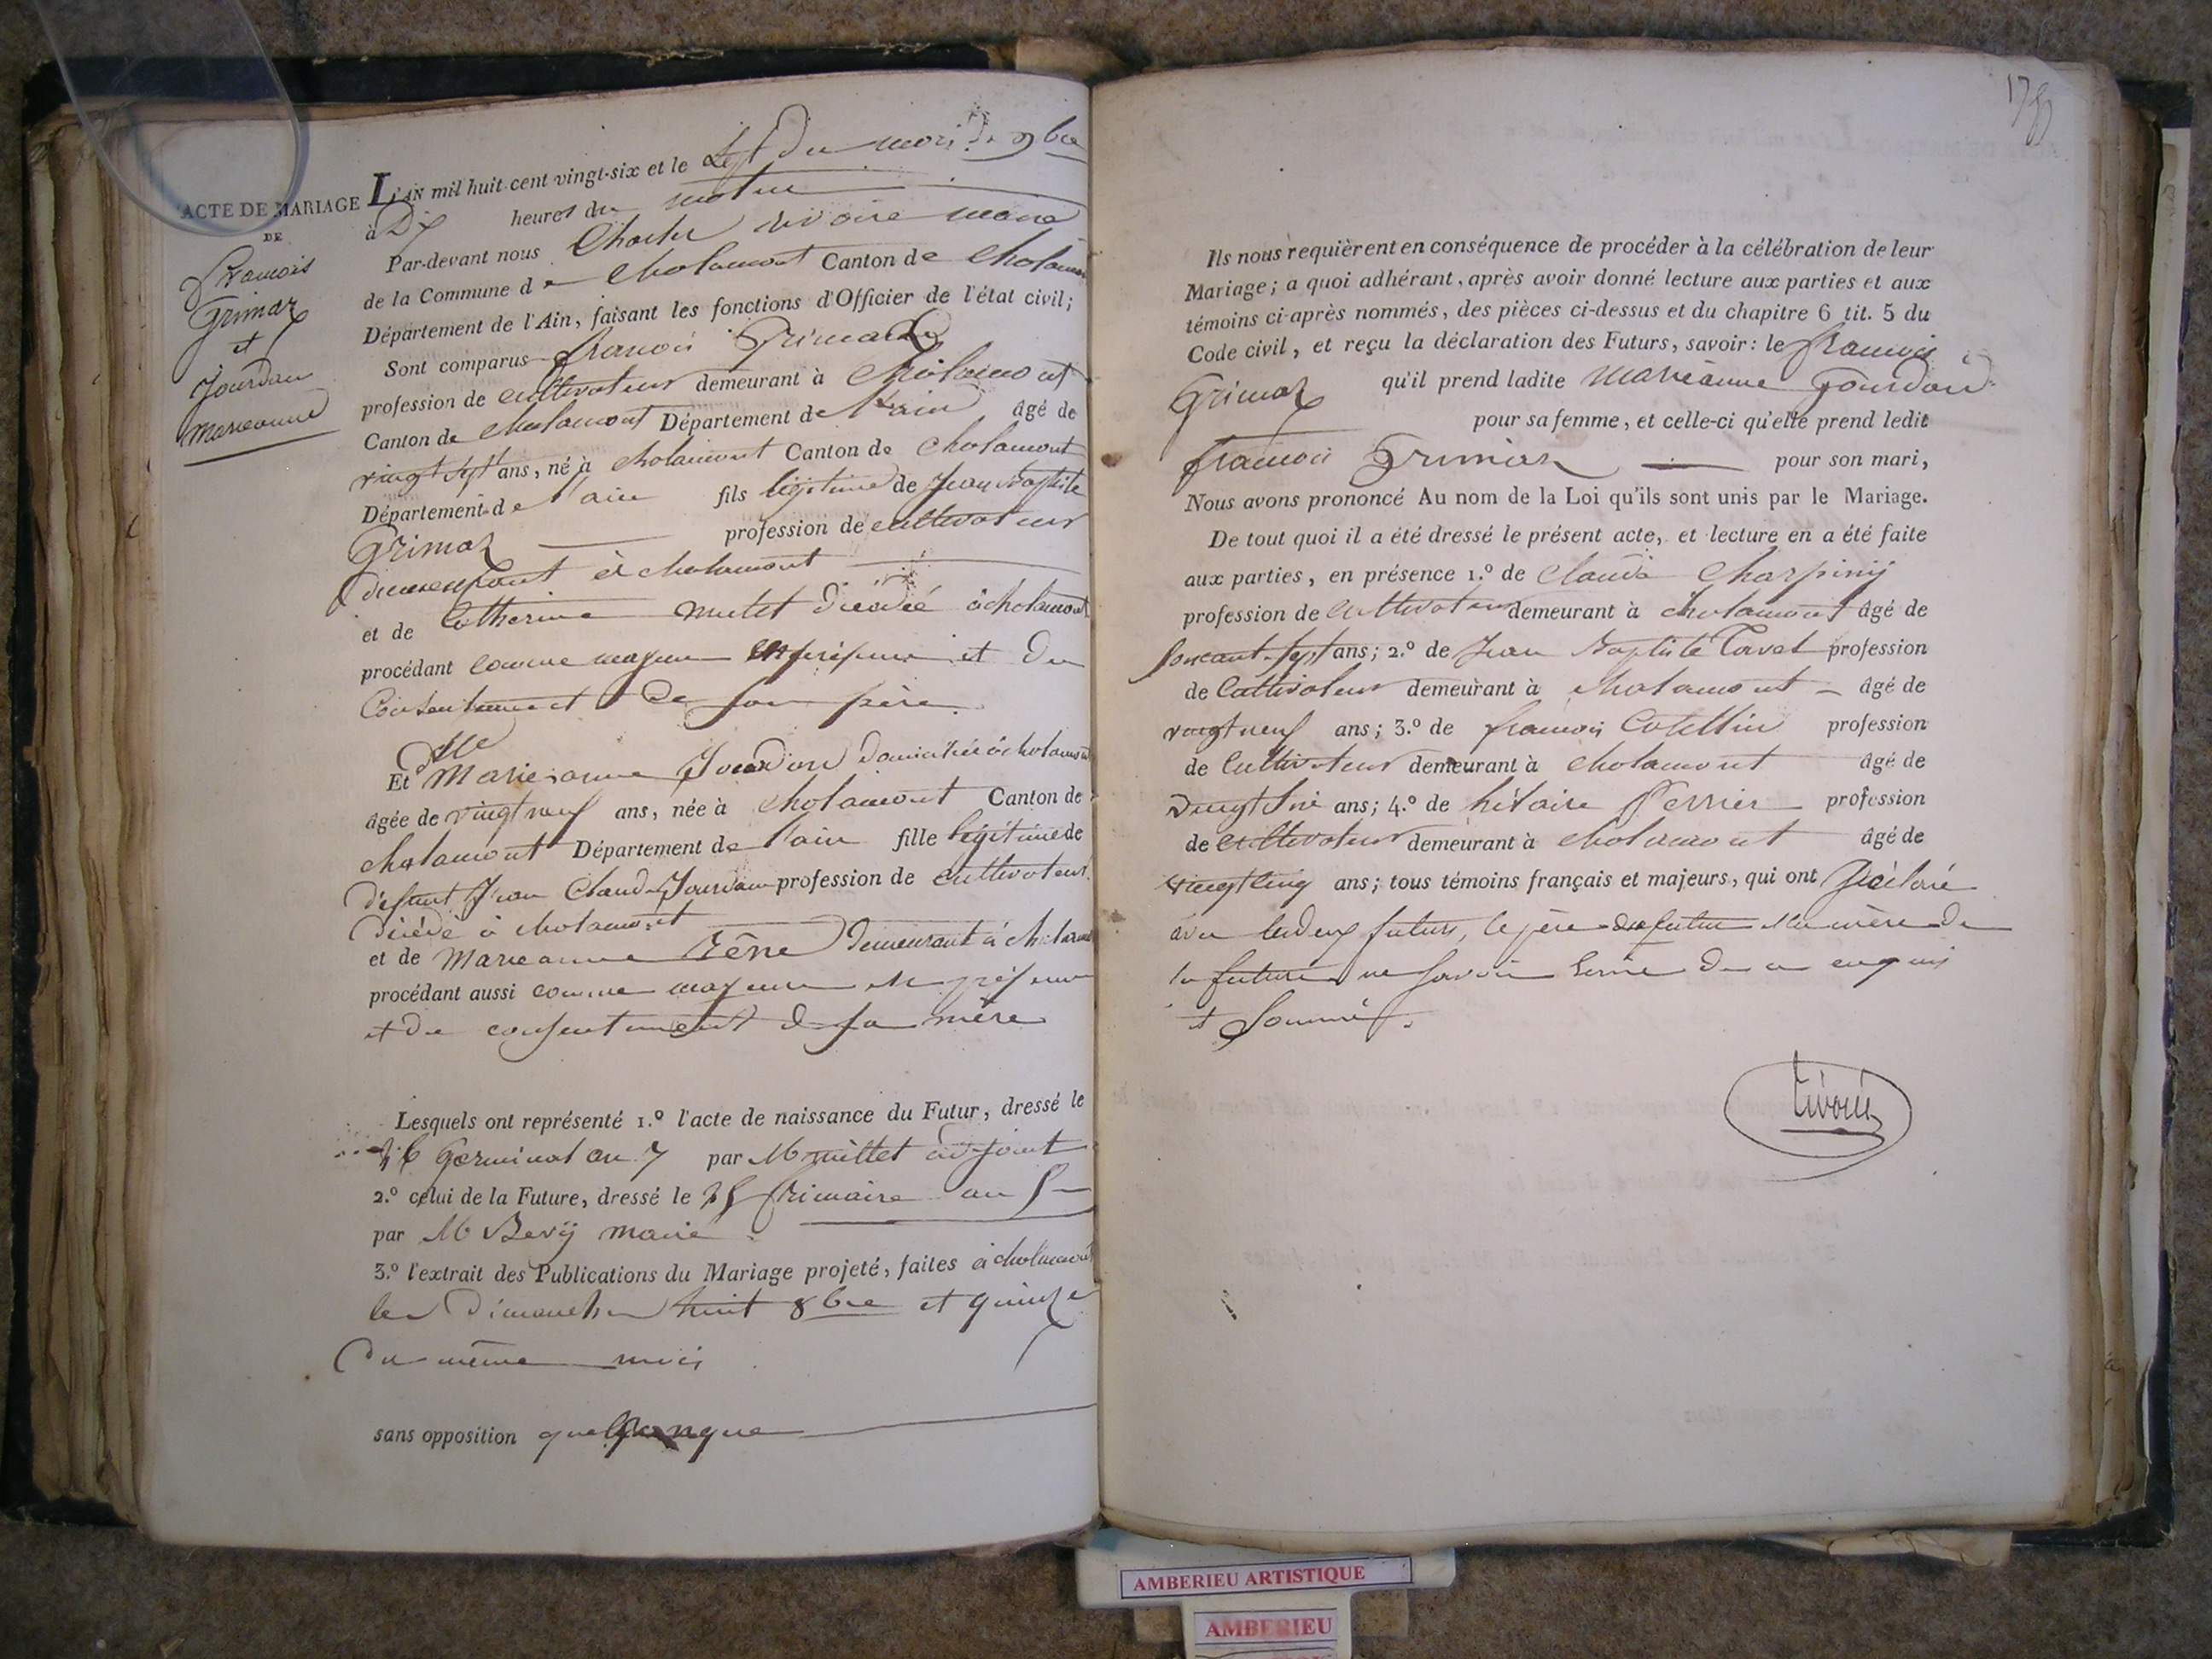 ACTE DE MARIAGE
DE
francois
Grimaz
et
Jourdan
marieanne
L'AN mil huit cent vingt-six et le Sept du mois de 9bre
à Dix heures du matin
Par-devant nous Charles rivoire maire
de la Commune de Chalamont Canton de Chalamont
Département de l'Ain, faisant les fonctions d'Officier de l'état civil;
Sont comparus francois Grimaz
profession de cultivateur demeurant à Chalamont
Canton de chalamont Département de l'ain âgé de
vingt sept ans, né à chalamont Canton de chalamont
Département de l'ain fils légitime de Jean Baptiste
Grimaz profession de cultivateur
demeurant à chalamont
et de Catherine mulet décédé à chalamont
procédant comme majeur en présence et du
Consentement de son père
Et Dlle Marieanne Jourdan domiciliée à chalamont
âgée de vingt neuf ans, née à chalamont Canton de
chalamont Département de l'ain fille légitime de
défunt Jean Claude Jourdan profession de cultivateur
décédé à chalamont
et de Marieanne demeurant à chalamont
procédant aussi comme majeure en présence
et du consentement de sa mère
Lesquels ont représenté 1.º l'acte de naissance du Futur, dressé le
germinal an 7 par M millet adjoint
2.º celui de la Future, dressé le 25 frimaire an 5
par M Bevy maire
3.º l'extrait des Publications du Mariage projeté, faites à chalamont
les Dimanches huit 8bre et quinze
Du même mois
sans opposition quelconque
Ils nous requièrent en conséquence de procéder à la célébration de leur
Mariage; a quoi adhérant, après avoir donné lecture aux parties et aux
témoins ci-après nommés, des pièces ci-dessus et du chapitre 6 tit. 5 du
Code civil, et reçu la déclaration des Futurs, savoir: le francois
Grimaz qu'il prend ladite marieanne Jourdan
pour sa femme, et celle-ci qu'elle prend ledit
francois Grimaz pour son mari,
Nous avons prononcé Au nom de la Loi qu'ils sont unis par le Mariage.
De tout quoi il a été dressé le présent acte, et lecture en a été faite
aux parties, en présence 1.º de Claude Charpiny
profession de Cultivateur demeurant à chalamont âgé de
Soixant-sept ans; 2.º de Jean Baptiste Tavel profession
de Cultivateur demeurant à chalamont âgé de
vingt neuf ans; 3.º de francois Cotellin profession
de Cultivateur demeurant à chalamont âgé de
vingt six ans; 4.º de hilaire Perrier profession
de cultivateur demeurant à chalamont âgé de
vingt cinq ans; tous témoins français et majeurs, qui ont déclaré
avec les deux futurs, le père du futur et la mère de
la future ne savoir Ecrire de ce enquis
et Sommés.
rivoire
AMBERIEU ARTISTIQUE
AMBERIEU